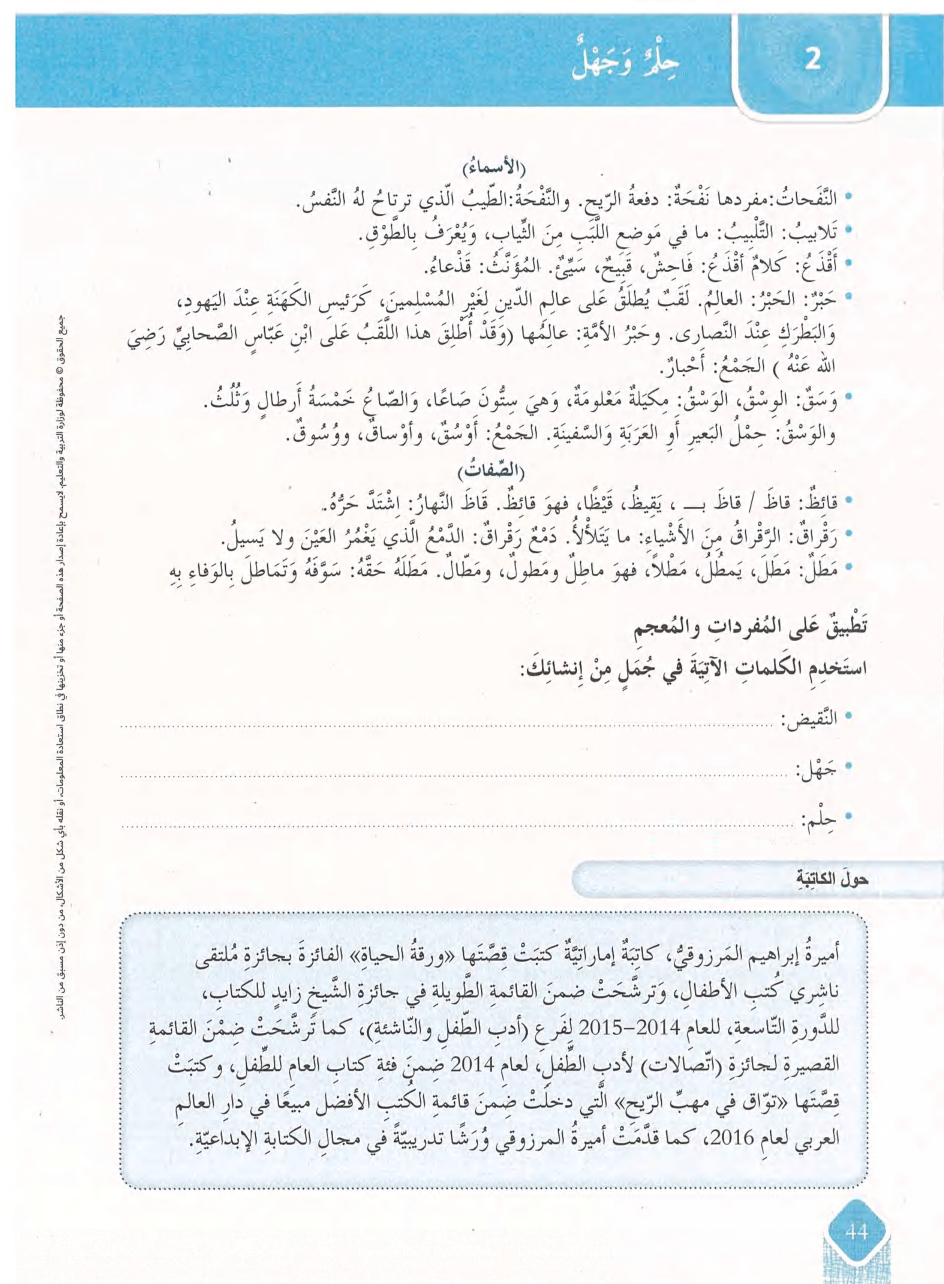 2
حِلْمٌ وَجَهْلٌ
(الأسماءُ)
• النَّفَحاتُ:مفردها نَفْحَةٌ: دفعةُ الرّيحِ. والنَّفْحَةُ:الطّيبُ الّذي ترتاحُ لهُ النَّفسُ.
• تَلابيبُ: التَّلْبيبُ: ما في مَوضعِ اللَّبَبِ مِنَ الثِّيابِ، وَيُعْرَفُ بِالطَّوْقِ.
• أَقْذَعُ: كَلامٌ أَقْذَعُ: فَاحِشٌ، قَبِيحٌ، سَيِّئٌ. المُؤَنَّثُ: قَذْعاءُ.
• حَبْرٌ: الحَبْرُ: العالِمُ. لَقَبٌ يُطلَقُ عَلى عالِمِ الدّينِ لِغَيْرِ المُسْلِمينَ، كَرَئيسِ الكَهَنَةِ عِنْدَ اليَهودِ،
وَالبَطْرَكِ عِنْدَ النَّصارى. وحَبْرُ الأمَّةِ: عالِمُها (وَقَدْ أُطْلِقَ هذا اللَّقَبُ عَلى ابْنِ عَبّاسٍ الصَّحابيِّ رَضِيَ
الله عَنْهُ ) الجَمْعُ: أَحْبارٌ.
• وَسَقٌ: الوِسْقُ، الوَسْقُ: مِكيَلةٌ مَعْلومَةٌ، وَهيَ سِتُّونَ صَاعًا، وَالصَّاعُ خَمْسَةُ أَرطالٍ وَثُلُثٌ.
والوَسْقُ: حِمْلُ البَعيرِ أَوِ العَرَبَةِ وَالسَّفينَةِ. الجَمْعُ: أَوْسُقٌ، وأوْساقٌ، ووُسُوقٌ.
(الصِّفاتُ)
• قائِظٌ: قاظَ / قاظَ بـــ ، يَقِيظُ، قَيْظًا، فهوَ قائِظٌ. قَاظَ النَّهارُ: اِشْتَدَّ حَرُّهُ.
• رَقْراقٌ: الرَّقْراقُ مِنَ الأَشْياءِ: ما يَتَلَأْلَأُ. دَمْعٌ رَقْراقٌ: الدَّمْعُ الَّذي يَغْمُرُ العَيْنَ ولا يَسيلُ.
• مَطَلٌ: مَطَلَ، يَمطُلُ، مَطْلاً، فهوَ ماطِلٌ ومَطولٌ، ومَطّالٌ. مَطَلَهُ حَقَّهُ: سَوَّفَهُ وَتَمَاطَلَ بِالوَفاءِ بِهِ
تَطْبيقٌ عَلى المُفرداتِ والمُعجمِ
استَخدِمِ الكَلماتِ الآتِيَةَ في جُمَلٍ مِنْ إنشائِكَ:
• النَّقيض:
• جَهْل:
• حِلْم:
حولَ الكاتِبَةِ
أميرةُ إبراهيم المَرزوقيُّ، كاتِبَةٌ إماراتِيَّةٌ كتبَتْ قِصَّتَها «ورقةُ الحياةِ» الفائزةَ بجائزةِ مُلتقى
ناشري كُتبِ الأطفالِ، وَترشَّحَتْ ضمنَ القائمةِ الطّويلةِ في جائزة الشَّيخِ زايدٍ للكتابِ،
للدَّورةِ التّاسعةِ، للعامِ 2014-2015 لِفَرعِ (أدبِ الطّفلِ والنّاشئةِ)، كما تَرشَّحَتْ ضِمْنَ القائمةِ
القصيرةِ لجائزةِ (اتّصالات) لأدبِ الطِّفلِ، لعامِ 2014 ضِمنَ فئةِ كتابِ العامِ للطِّفلِ، وكتبَتْ
قِصَّتَها «توّاق في مهبِّ الرّيحِ» الَّتي دخلَتْ ضِمنَ قائمةِ الكُتبِ الأفضلِ مبيعًا في دارِ العالمِ
العربي لعام 2016، كما قدَّمَتْ أميرةُ المرزوقي وُرَشًا تدريبيّةً في مجالِ الكتابةِ الإبداعيّةِ.
جميع الحقوق © محفوظة لوزارة التربية والتعليم. لايسمح بإعادة إصدار هذه الصفحة أو جزء منها أو تخزينها في نطاق استعادة المعلومات، أو نقله بأي شكل من الأشكال، من دون إذن مسبق من الناشر.
44